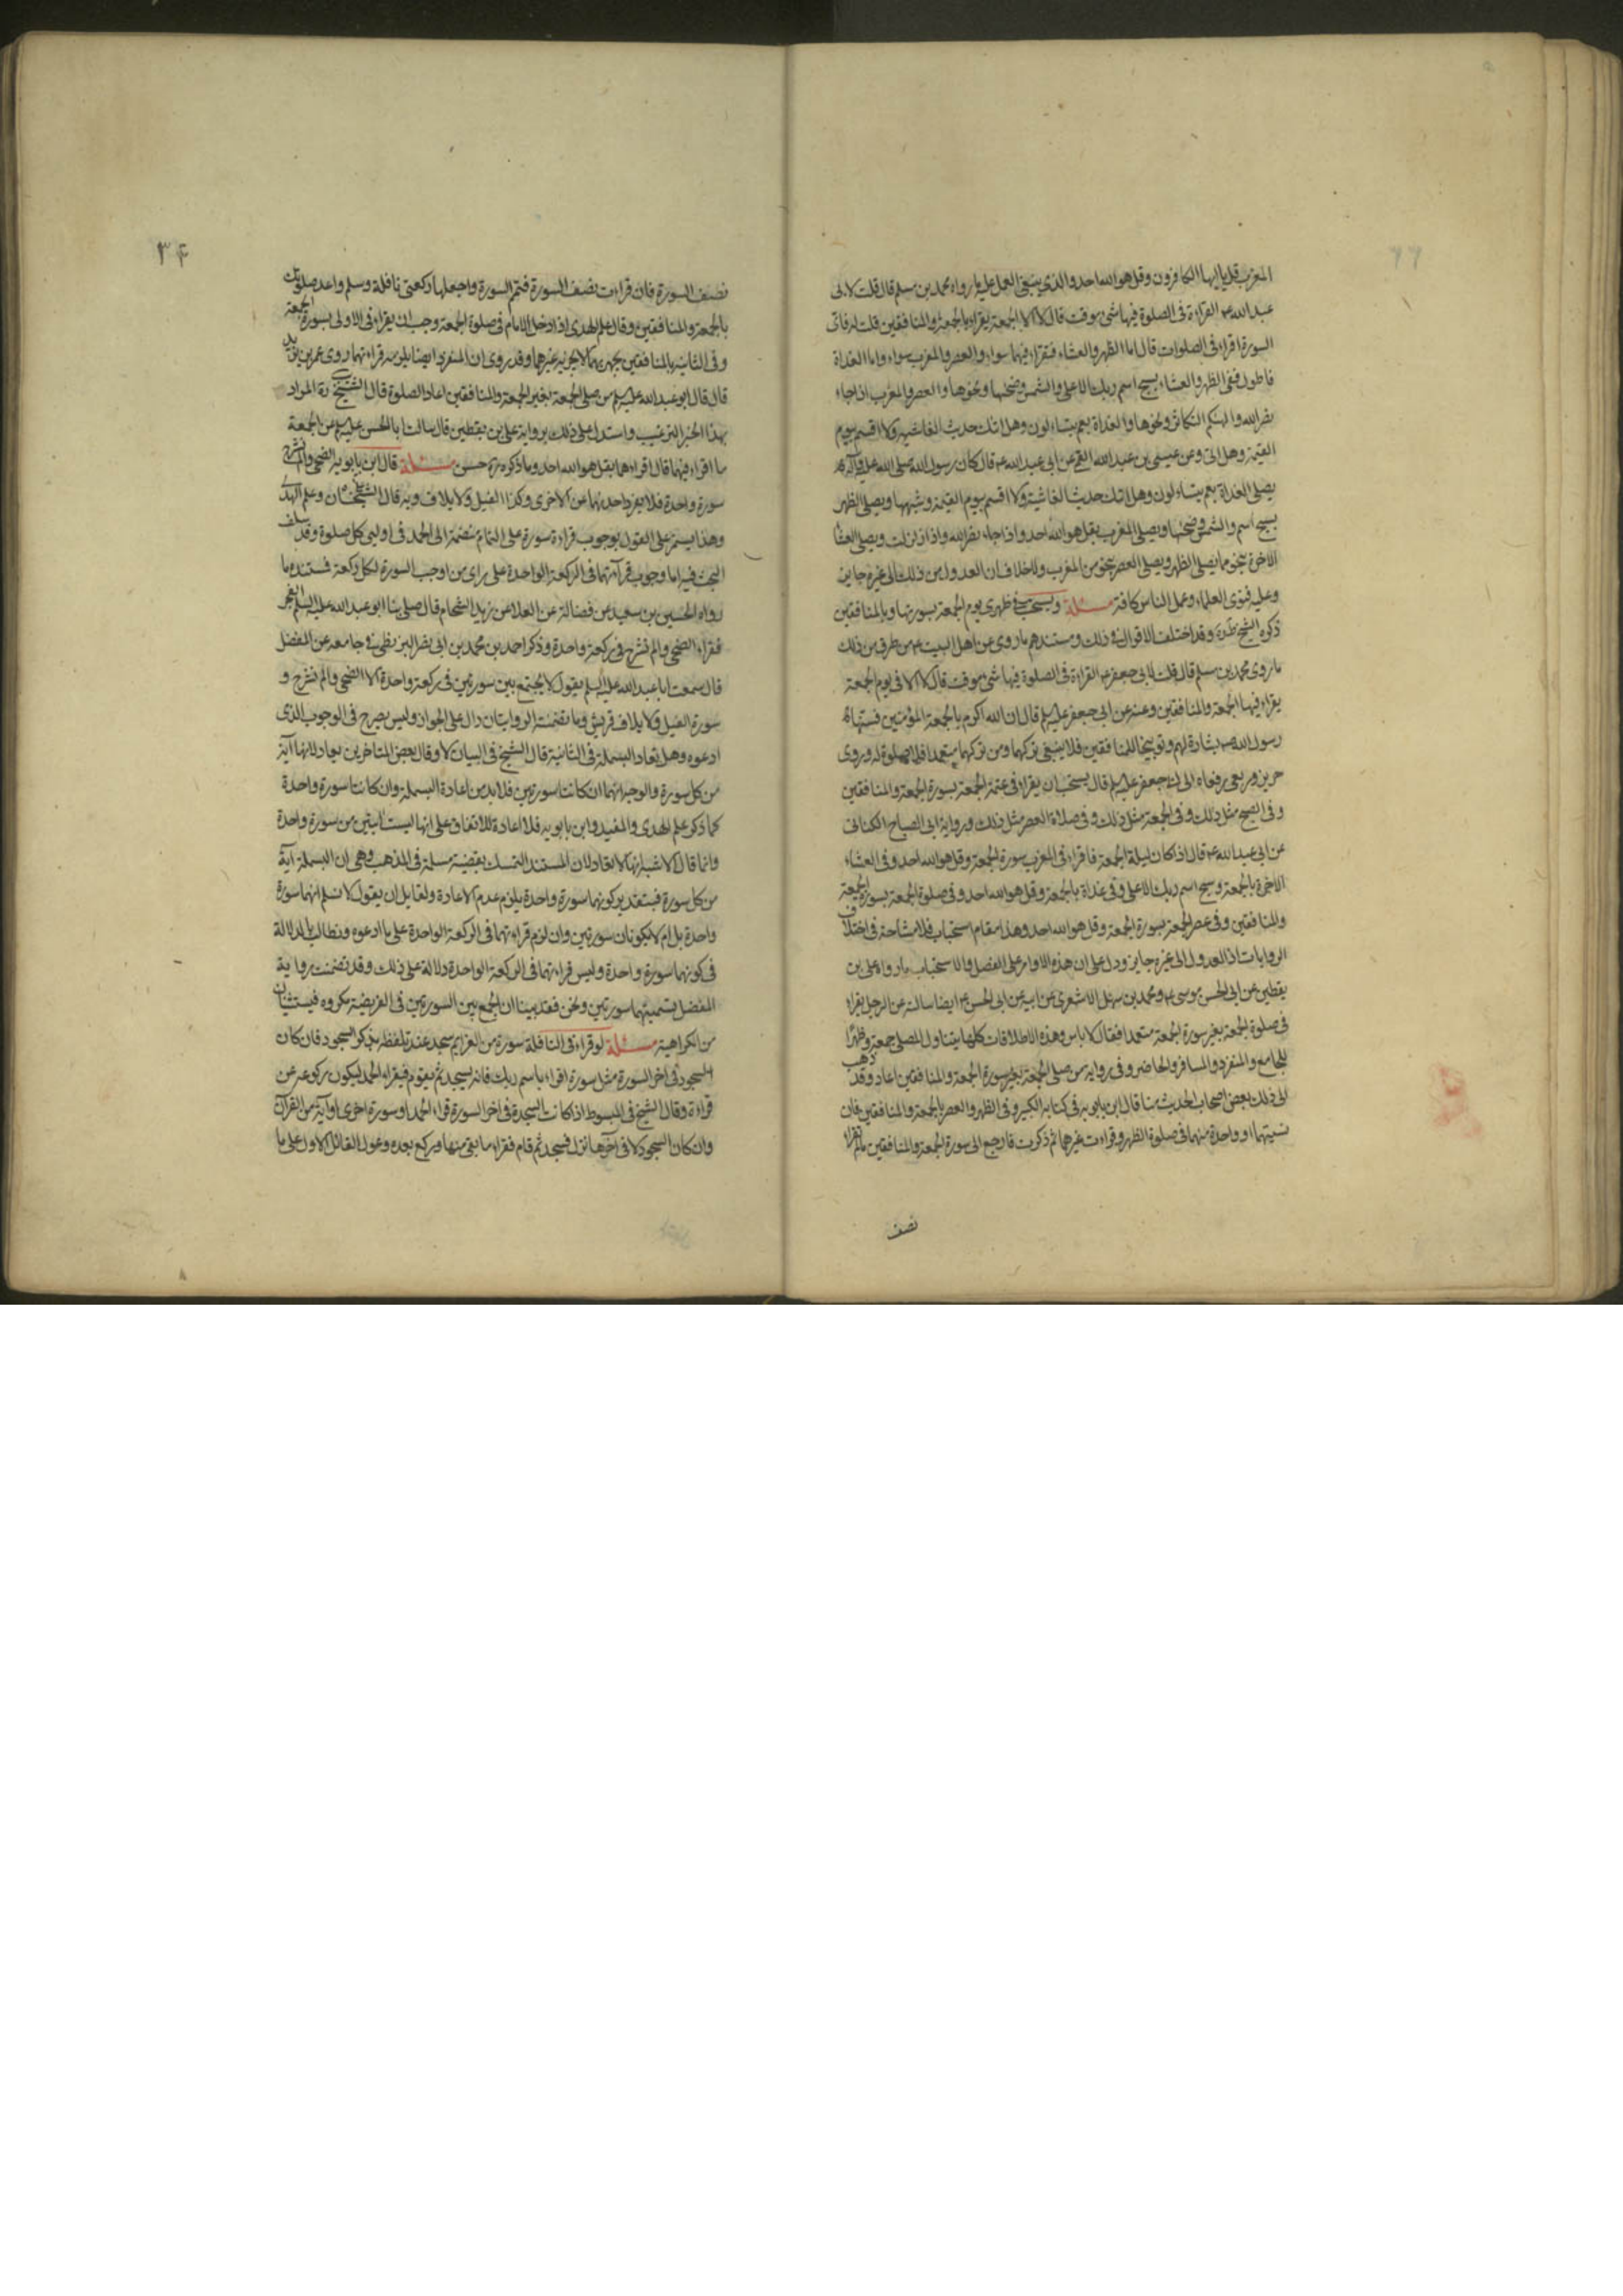 المغرب قل يا ايها الكافرون وقل هو الله احد والذي ينبغي العمل عليه ما رواه محمد بن مسلم قال قلت لابى
عبد الله ع القراءة فى الصلوة فيها شئ موقت قال لا الا الجمعة يقراء بالجمعة والمنافقين قلت له فائ
السور اقراء فى الصلوات قال اما الظهر والعشاء فتقراء فيهما سواء والعصر والمغرب سواء واما الغداة
فاطول ففى الظهر والعشاء بسبح اسم ربك الاعلى والشمس وضحيها ونحوها والعصر والمغرب اذا جاء
نصر الله والهيكم التكاثر ونحوها والغداة بعم يتساءلون وهل اتك حديث الغاشيه ولا اقسم بيوم
القيمة وهل اتى وعن عيسى بن عبد الله القمى عن ابى عبد الله ع قال كان رسول الله صلى الله عليه وآله
يصلى الغداة بعم يتساءلون وهل اتك حديث الغاشية ولا اقسم بيوم القيمة وشبهها ويصلى الظهر
بسبح اسم والشمس وضحها ويصلى المغرب بقل هو الله احد واذا جاء نصر الله واذا زلزلت ويصلى العشا
الاخرة بنحو ما يصلى الظهر ويصلى العصر بنحو من المغرب ولا خلاف ان العدول من ذلك الى غيره جايز
وعليه فتوى العلماء وعمل الناس كافة مسئلة ويستحب فى ظهرى يوم الجمعة بسورتها وبالمنافقين
ذكره الشيخ وقد اختلف الاقوال فى ذلك ومستندهم ما روى عن اهل البيت ع من طرق من ذلك
ما روى محمد بن مسلم قال قلت لابى جعفر ع القراءة فى الصلوة فيها شئ موقت قال لا الا فى يوم الجمعة
يقراء فيها الجمعة والمنافقين وعنه عن ابى جعفر عليه السلم قال ان الله اكرم بالجمعة المؤمنين فسنها
رسول الله ص بشارة لهم وتوبيخا للمنافقين فلا ينبغى تركهما ومن تركهما متعمدا فلا صلوة له وروى
حريز وربعى رفعاه الى ابى جعفر عليه السلم قال يستحب ان يقراء فى عتمة الجمعة بسورة الجمعة والمنافقين
وفى الصبح مثل ذلك وفى الجمعة مثل ذلك وفى صلاة العصر مثل ذلك ورواية ابى الصباح الكنانى
عن ابى عبد الله ع قال اذا كان ليلة الجمعة فاقراء فى المغرب سورة الجمعة وقل هو الله احد وفى العشاء
الاخرة بالجمعة وسبح اسم ربك الاعلى وفى غداة بالجمعة وقل هو الله احد وفى صلوة الجمعة بسورة الجمعة
والمنافقين وفى عصر الجمعة بسورة الجمعة وقل هو الله احد وهذا مقام استحباب فلا مشاحة فى اختلاف
الروايات اذ العدول الى غيره جايز ودل على ان هذه الاوامر على الفضل والاستحباب ما رواه على بن
يقطين عن ابى الحسن موسى ع ومحمد بن سهل الاشعرى عن ابيه عن ابى الحسن ع ايضا سالته عن الرجل يقراء
فى صلوة الجمعة بغير سورة الجمعة متعمدا فقال لا باس وهذه الاطلاقات كلها يتناول المصلى جمعة وظهرا
للجامع والمنفرد والمسافر والحاضر وفى رواية من صلى الجمعة بغير سورة الجمعة والمنافقين اعاد وقد ذهب
الى ذلك بعض اصحاب الحديث منا قال ابن بابويه فى كتابه الكبير وفى الظهر والعصر بالجمعة والمنافقين فان
نسيتهما او واحدة منهما فى صلوة الظهر وقراءت غيرهما ثم ذكرت فارجع الى سورة الجمعة والمنافقين مالم تقراء
نصف
٣۴
نصف السورة فان قراءت نصف السورة فتمم السورة واجعلها ركعتى نافلة وسلم واعد صلوتك
بالجمعة والمنافقين وقال علم الهدى اذا دخل الامام فى صلوة الجمعة وجب ان يقراء فى الاولى بسورة الجمعة
وفى الثانية بالمنافقين يجهر بهما لا يجزيه غيرهما وقد روى ان المنفرد ايضا يلزمه قراءتهما روى عمر بن يزيد
قال قال ابو عبد الله عليه السلم من صلى الجمعة بغير الجمعة والمنافقين اعاد الصلوة قال الشيخ ره المراد
بهذا الخبر الترغيب واستدل على ذلك برواية على بن يقطين قال سالت ابا الحسن عليه السلم عن الجمعة
ما اقراء فيهما قال اقراءهما بقل هو الله احد وما ذكره ره حسن مسئلة قال ابن بابويه الضحى والم نشرح
سورة واحدة فلا يفرد احديهما عن الاخرى وكذا الفيل ولايلاف وبه قال الشيخان وعلم الهدى
وهذا يستمر على القول بوجوب قراءة سورة على التمام منضمة الى الحمد فى اوليى كل صلوة وقد سلف
البحث فيه اما وجوب قرآءتهما فى الركعة الواحدة على راى من اوجب السورة لكل ركعة فسنده ما
رواه الحسين بن سعيد عن فضالة عن العلا عن زيد الشحام قال صلى بنا ابو عبد الله عليه السلم الفجر
فقراء الضحى والم نشرح فى ركعة واحدة وذكر احمد بن محمد بن ابى نصر البزنطى فى جامعه عن المفضل
قال سمعت ابا عبد الله عليه السلم يقول لا يجتمع بين سورتين فى ركعة واحدة الا الضحى والم نشرح و
سورة الفيل ولايلاف قريش وما تضمنته الروايتان دال على الجواز وليس بصريح فى الوجوب الذى
ادعوه وهل تعاد البسملة فى الثانية قال الشيخ فى التبيان لا وقال بعض المتاخرين تعاد لانها آية
من كل سورة والوجه انهما ان كانتا سورتين فلا بد من اعادة البسملة وان كانتا سورة واحدة
كما ذكر علم الهدى والمفيد وابن بابويه فلا اعادة للاتفاق على انها ليست آيتين من سورة واحدة
وانما قال الاشبه انها لا تعاد لان المستند التمسك بقضية مسلمة فى المذهب وهى ان البسملة آية
من كل سورة فبتقدير كونهما سورة واحدة يلزم عدم الاعادة ولقايل ان يقول لا نسلم انهما سورة
واحدة بل لم لا يكونان سورتين وان لزم قراءتهما فى الركعة الواحدة على ما ادعوه ونطالب بالدلالة
فى كونهما سورة واحدة وليس قراءتهما فى الركعة الواحدة دلالة على ذلك وقد تضمنت رواية
المفضل تسميتهما سورتين ونحن فقد بينا ان الجمع بين السورتين فى الفريضة مكروه فيستثنيان
من الكراهية مسئلة لو قراء فى النافلة سورة من العزايم سجد عند تلفظه بذكر السجود فان كان
السجود فى اخر السورة مثل سورة اقراء باسم ربك فانه يسجد ثم يقوم فيقراء الحمد ليكون ركوعه عن
قراءة وقال الشيخ فى المبسوط اذا كانت السجدة فى اخر السورة قراء الحمد او سورة اخرى او آية من القرآن
وان كان السجود لا فى آخرها نزل فسجد ثم قام فقراء ما بقى منها وركع بعده وعول القائل الاول على ما